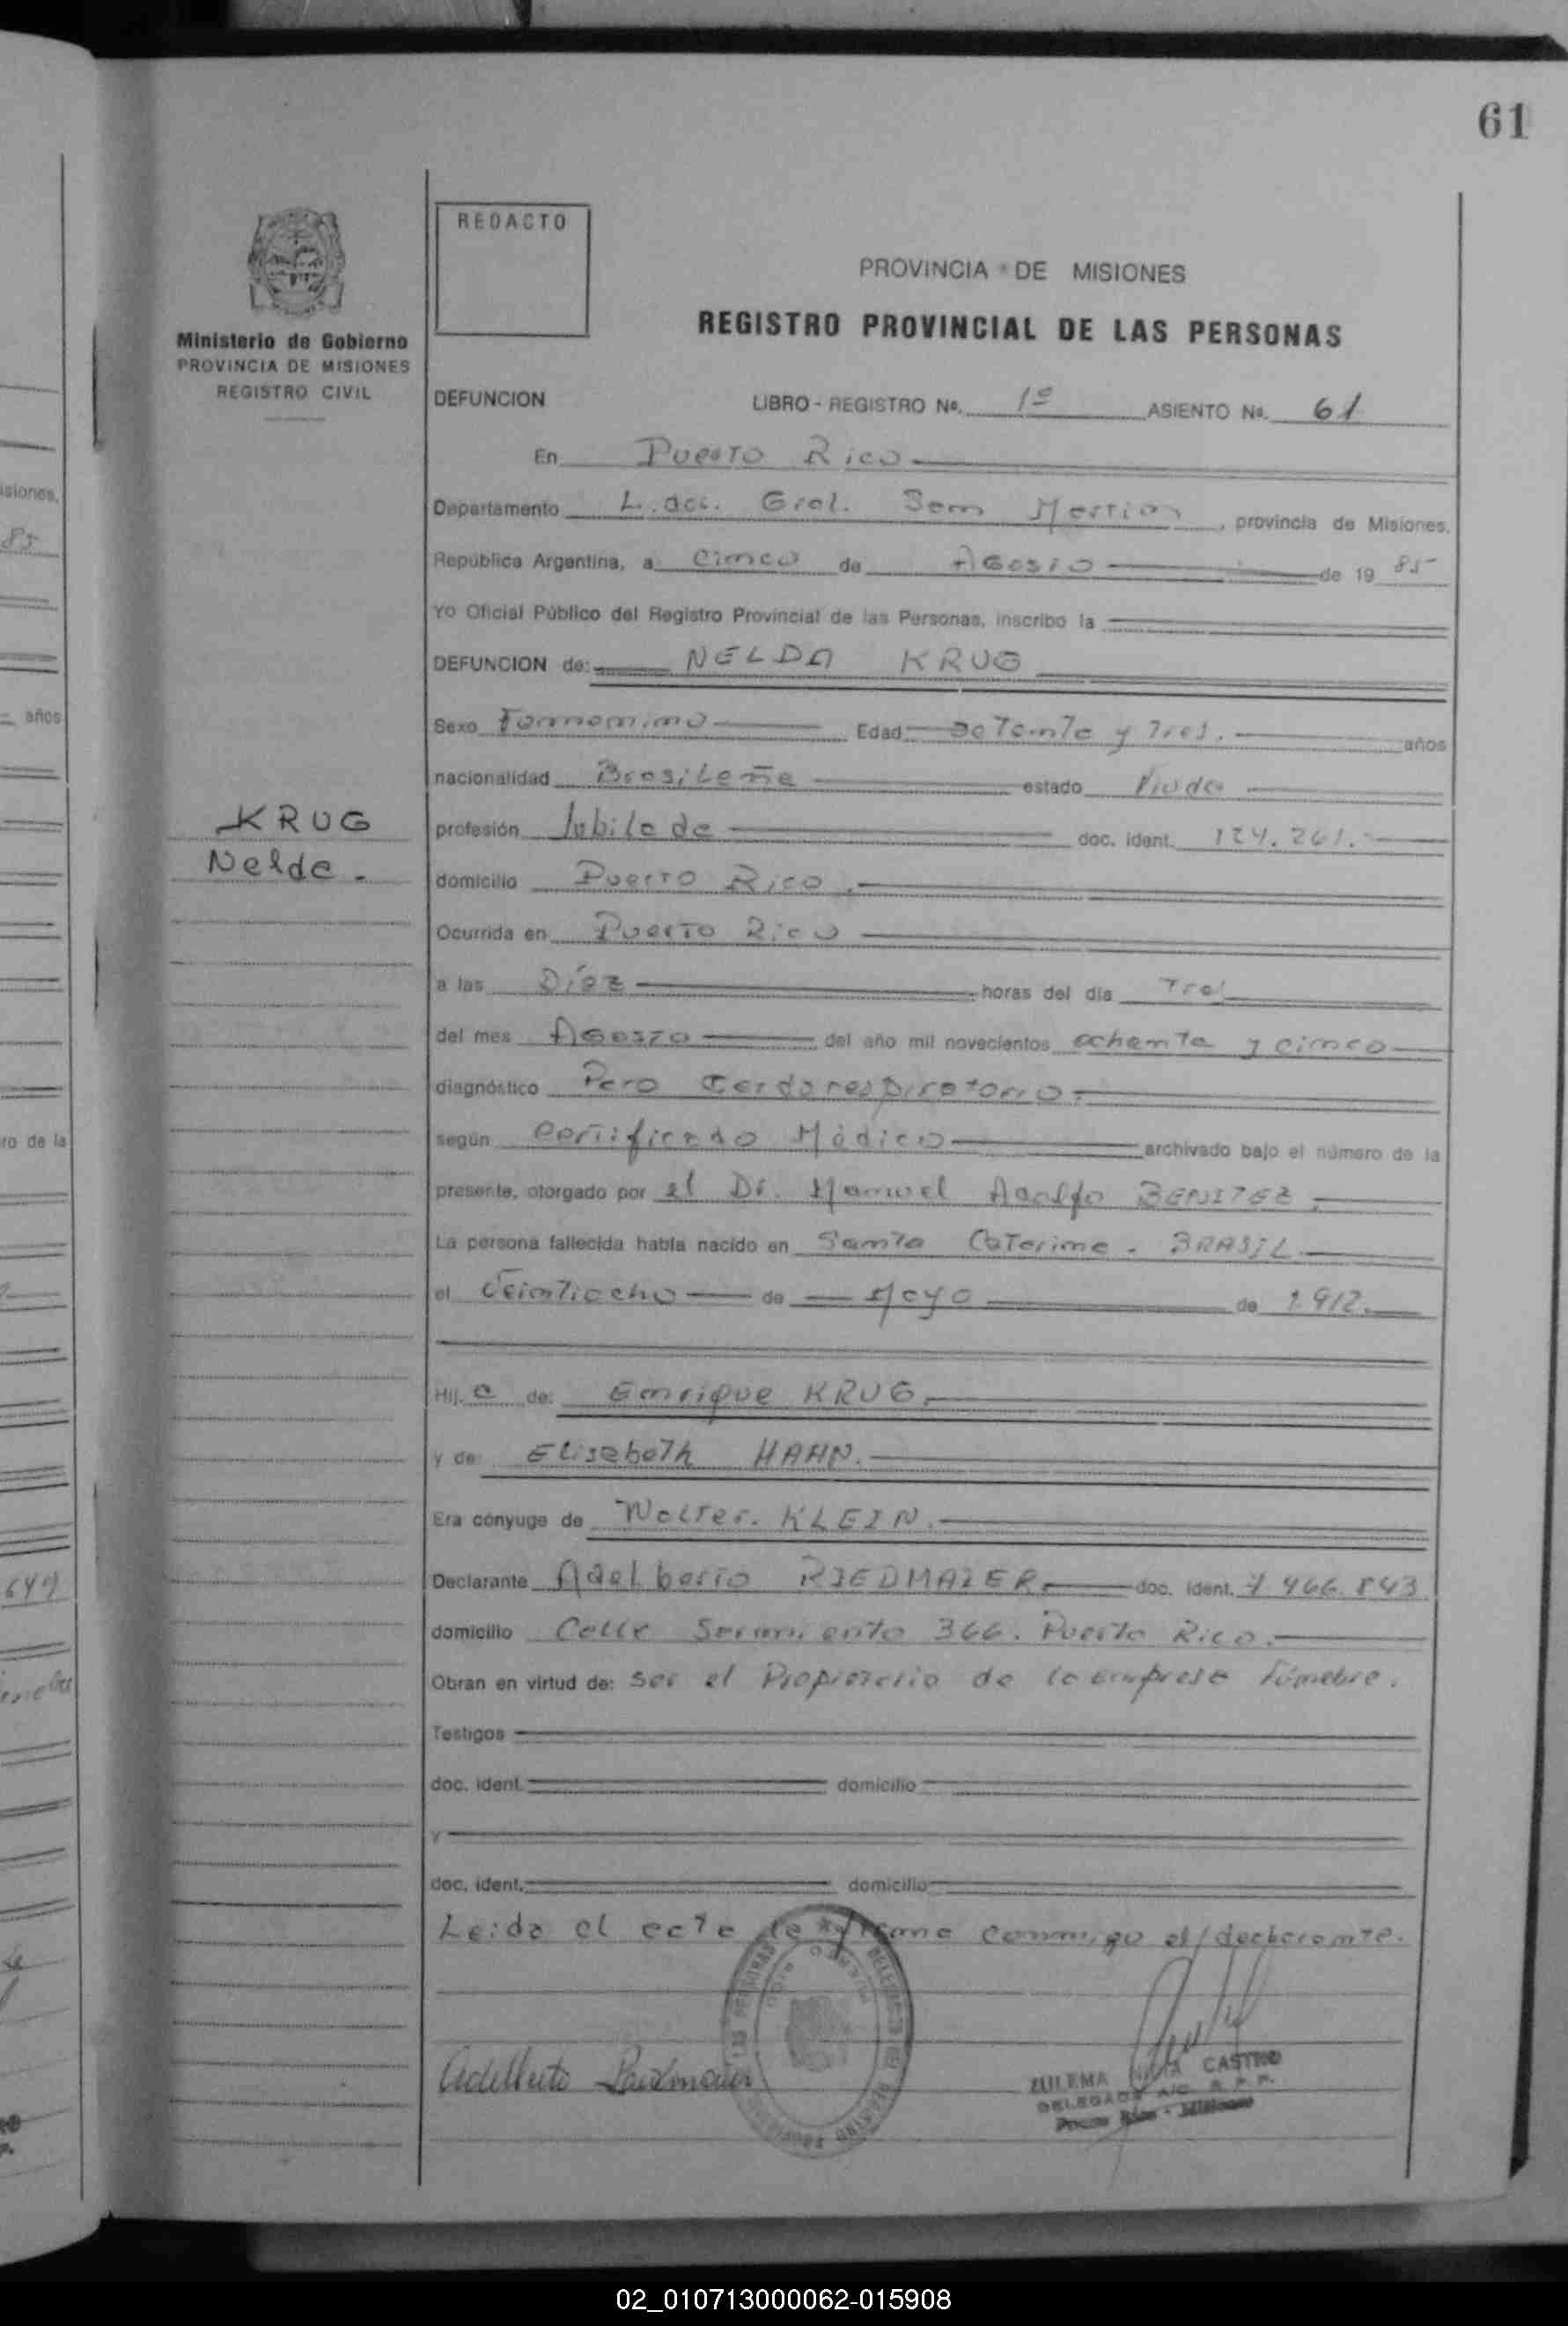 61
REDACTO
PROVINCIA DE MISIONES
REGISTRO PROVINCIAL DE LAS PERSONAS
Ministerio de Gobierno
PROVINCIA DE MISIONES
REGISTRO CIVIL
DEFUNCION LIBRO - REGISTRO Nº. 1º ASIENTO Nº. 61
En Puerto Rico
Departamento L. Gral. San Martin, provincia de Misiones.
República Argentina, a cinco de Agosto de 19 85
Yo Oficial Público del Registro Provincial de las Personas, inscribo la
DEFUNCION de: NELDA KRUG
Sexo Femenino Edad setenta y tres. años
nacionalidad Brasileña estado Viuda
KRUG
Nelda.
profesión Jubilada doc. ident. 124.261.
domicilio Puerto Rico.
Ocurrida en Puerto Rico
a las Díez horas del día Tres
del mes Agosto del año mil novecientos ochenta y cinco
diagnóstico Paro Cardorespiratorio.
según Certificado Médico archivado bajo el número de la
presente, otorgado por el Dr. Manuel Adolfo BENITEZ.
La persona fallecida había nacido en Santa Catarina - BRASIL
el Veintiocho de Mayo de 1.912.
Hij a de: Enrique KRUG.
y de: Elisabeth HAHN.
Era cónyuge de Walter. KLEIN.
Declarante Adelberto RIEDMAIER. doc. ident. 7.466.843
domicilio Calle Sarmiento 366. Puerto Rico.
Obran en virtud de: ser el Propietario de la empresa Fúnebre.
Testigos
doc. ident. domicilio
y
doc. ident. domicilio
Leida el acta la firma conmigo el/declarante.
Adelberto Riedmaier
ZULEMA CASTRO
DELEGADA A/C R. P. P.
Puerto Rico - Misiones
isiones,
85
años
ro de la
649
02_010713000062-015908